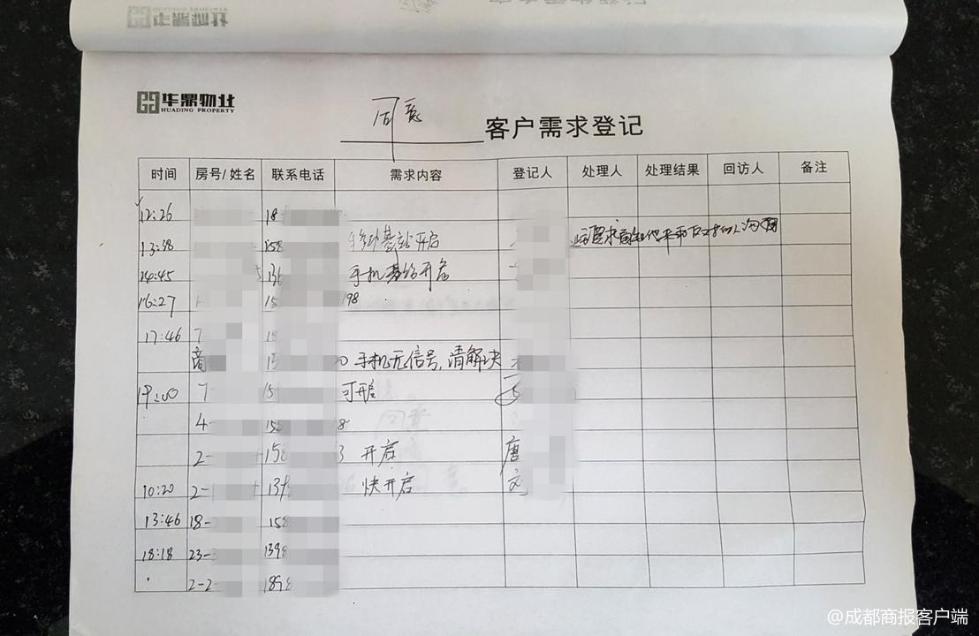 华鼎物业
华鼎物业
HUADING PROPERTY
同意 客户需求登记
时间 房号/姓名 联系电话 需求内容 登记人 处理人 处理结果 回访人 备注
12:26 18
13:38 158 移动基站开启
14:45 136 手机基站开启
16:27 15 98
17:46 7 18
商 15 0 手机无信号,请解决
19:00 7 15 可开启
4- 150 8
2- 158 3 开启 唐
10:20 2- 139 快开启 文
13:46 18- 158
18:18 23- 1398
2-2- 1898
@成都商报客户端